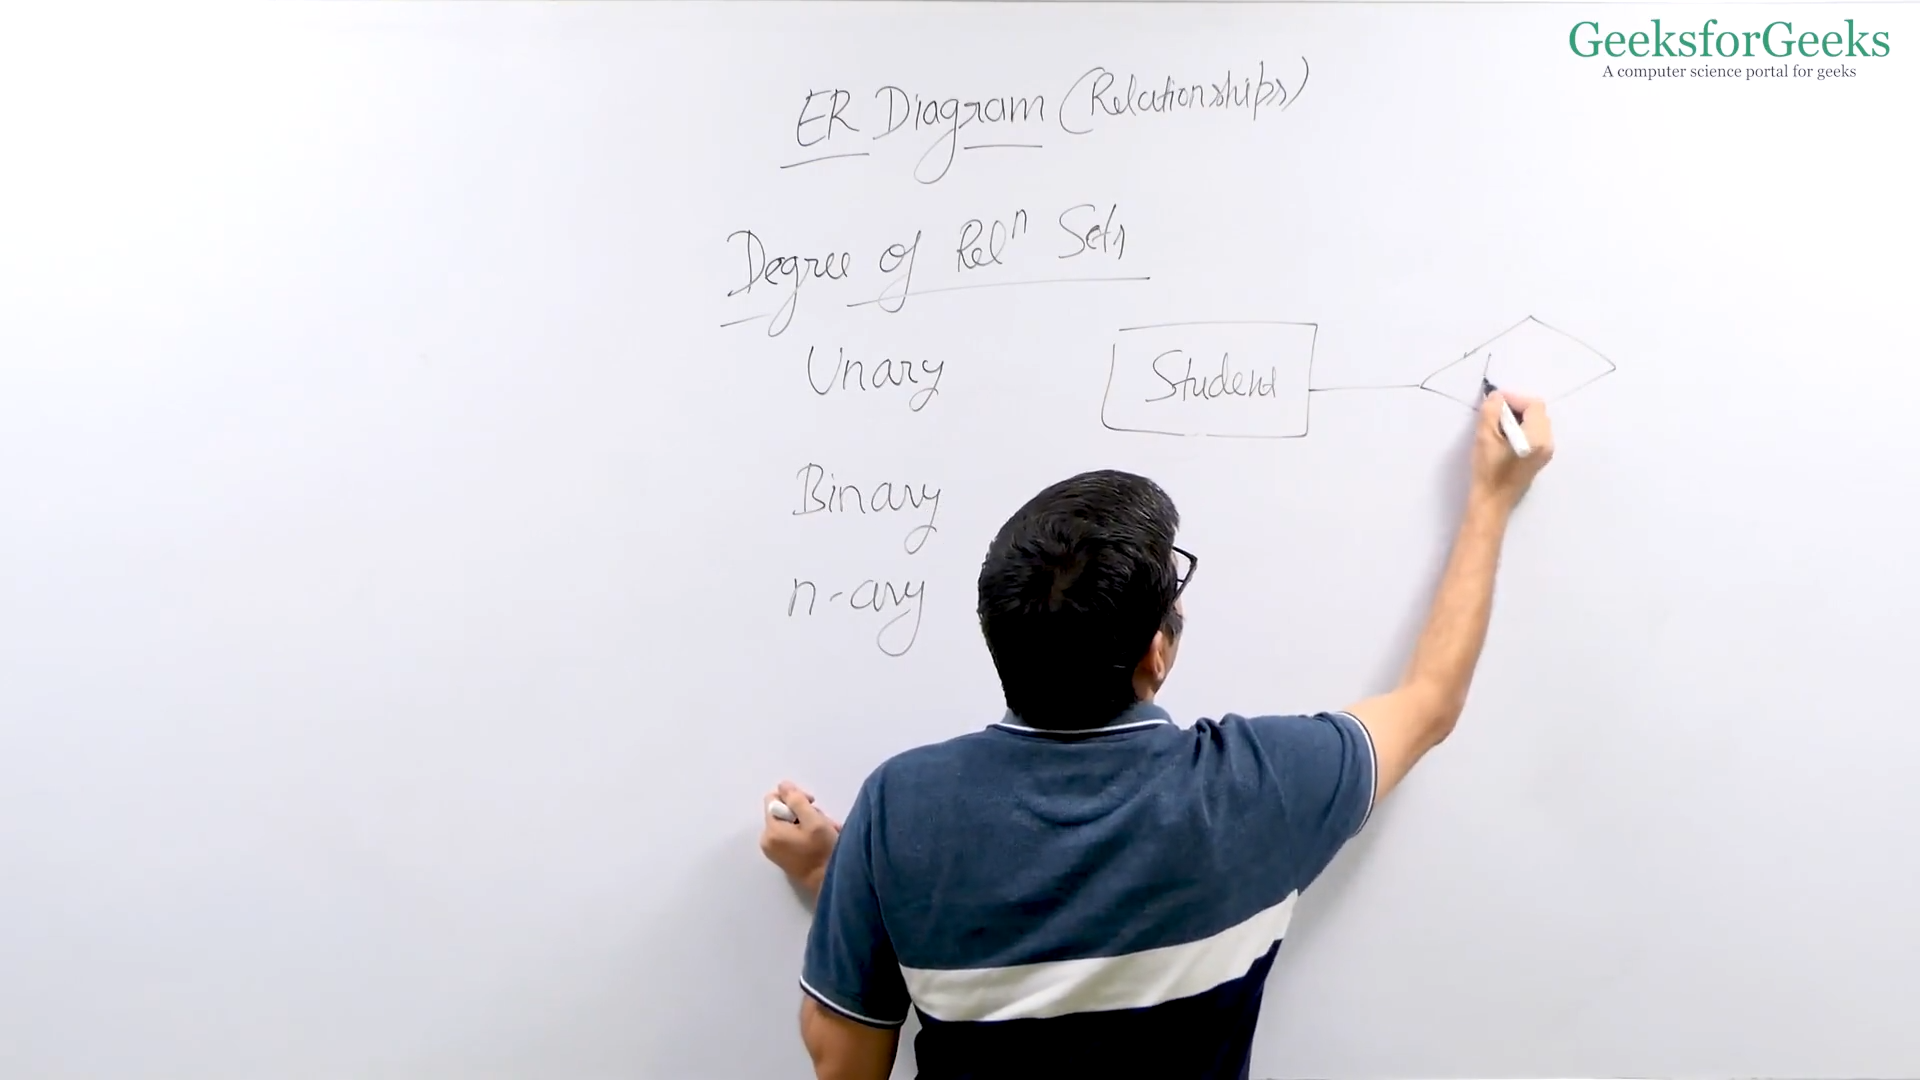 GeeksforGeeks
A computer science portal for geeks
ER Diagram (Relationships)
Degree of Relⁿ Sets
Unary
Student
Binary
n-ary